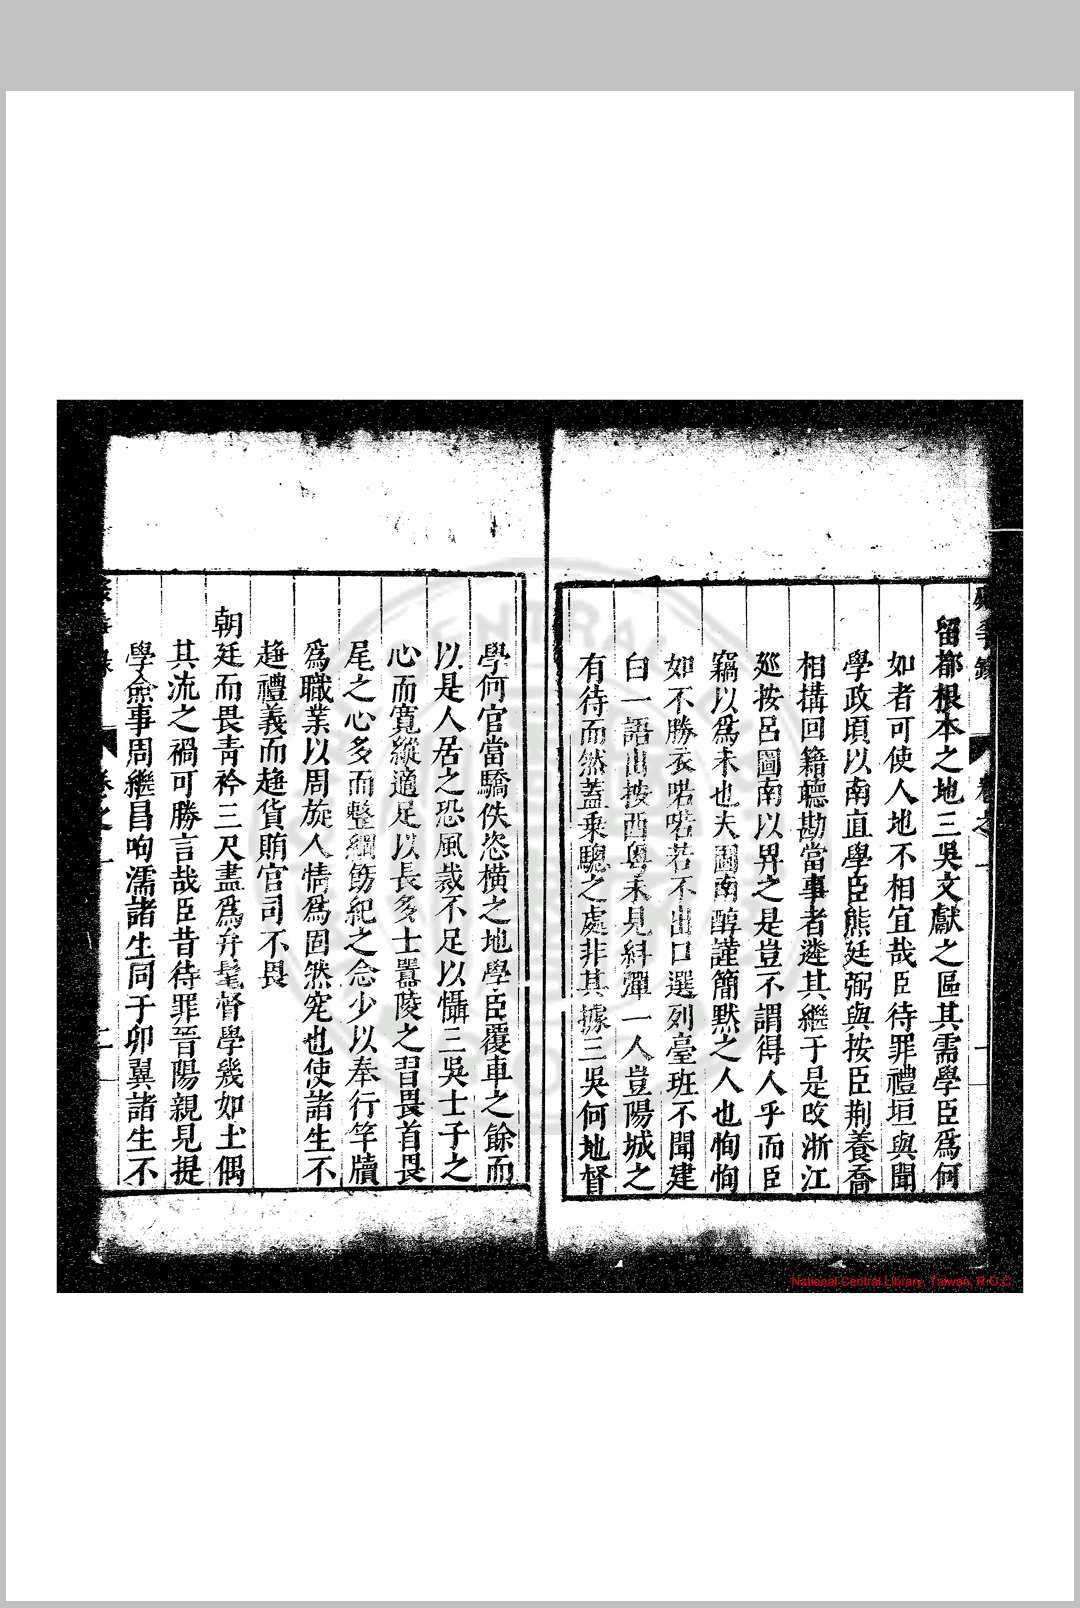 留都根本之地三吳文獻之區其需學臣爲何
如者可使人地不相宜哉臣待罪禮垣與聞
學政頃以南直學臣熊廷弼與按臣荆養喬
相搆回籍聽勘當事者遴其繼于是改浙江
廵按呂圖南以畀之是豈不謂得人乎而臣
竊以爲未也夫圖南醇謹簡默之人也恂恂
如不勝衣喏喏若不出口選列臺班不聞建
白一語出按西粵未見糾彈一人豈陽城之
有待而然蓋乗驄之處非其據三吳何地督
學何官當驕佚恣橫之地學臣覆車之餘而
以是人居之恐風裁不足以懾三吳士子之
心而寛縱適足以長多士囂陵之習畏首畏
尾之心多而整綱飭紀之念少以奉行竿牘
爲職業以周旋人情爲固然究也使諸生不
趨禮義而趨貨賄官司不畏
朝廷而畏青衿三尺盡爲弁髦督學幾如土偶
其流之禍可勝言哉臣昔待罪晉陽親見提
學僉事周繼昌呴濡諸生同于卵翼諸生不
卷之一
二
卷之一
一
National Central Library, Taiwan, R.O.C